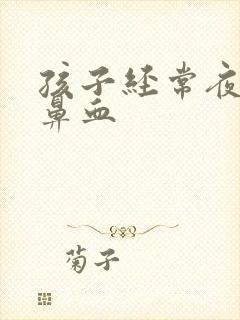 孩子经常夜
鼻血
菊子